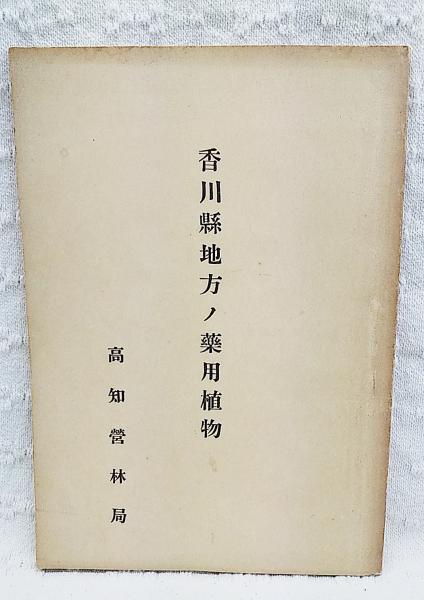 香川縣地方ノ藥用植物
高知營林局